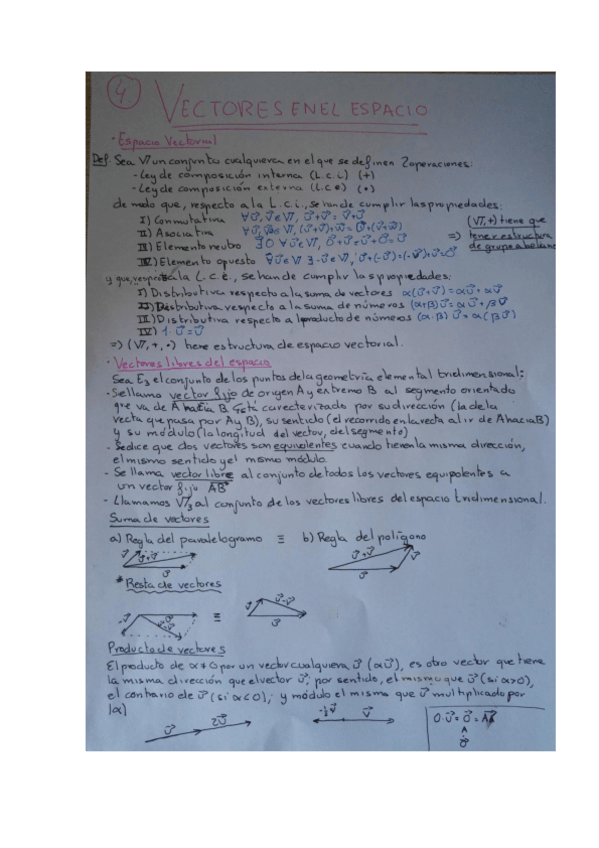 4.
VECTORES EN EL ESPACIO
· Espacio Vectorial
Def. Sea V un conjunto cualquiera en el que se definen 2 operaciones:
- Ley de composición interna (L.c.i.) (+)
- Ley de composición externa (L.c.e) (·)
de modo que, respecto a la L.c.i., se han de cumplir las propiedades:
I) Conmutativa ∀ u⃗, v⃗ ∈ V, u⃗+v⃗ = v⃗+u⃗
II) Asociativa ∀ u⃗, v⃗, w⃗ ∈ V, (u⃗+v⃗)+w⃗ = u⃗+(v⃗+w⃗)
III) Elemento neutro ∃ 0⃗ ∀ u⃗ ∈ V, 0⃗+u⃗ = u⃗+0⃗ = u⃗
IV) Elemento opuesto ∀ u⃗ ∈ V ∃ -u⃗ ∈ V, u⃗+(-u⃗) = (-u⃗)+u⃗ = 0⃗
=> (V,+) tiene que
tener estructura
de grupo abeliano
y que, respecto a la L.c.e., se han de cumplir las propiedades:
I) Distributiva respecto a la suma de vectores α(u⃗+v⃗) = αu⃗ + αv⃗
II) Distributiva respecto a la suma de números (α+β)u⃗ = αu⃗ + βu⃗
III) Distributiva respecto al producto de números (α·β)u⃗ = α(βu⃗)
IV) 1·u⃗ = u⃗
=> (V, +, ·) tiene estructura de espacio vectorial.
· Vectores libres del espacio
Sea E₃ el conjunto de los puntos de la geometría elemental tridimensional:
- Se llama vector fijo de origen A y extremo B al segmento orientado
que va de A hacia B. Está caracterizado por su dirección (la de la
recta que pasa por A y B), su sentido (el recorrido en la recta al ir de A hacia B)
y su módulo (la longitud del vector, del segmento)
- Se dice que dos vectores son equivalentes cuando tienen la misma dirección,
el mismo sentido y el mismo módulo.
- Se llama vector libre al conjunto de todos los vectores equipolentes a
un vector fijo AB⃗
- Llamamos V₃ al conjunto de los vectores libres del espacio tridimensional.
Suma de vectores
a) Regla del paralelogramo ≡ b) Regla del polígono
v⃗ u⃗+v⃗ u⃗
u⃗+v⃗ v⃗ u⃗
* Resta de vectores
≡
Producto de vectores
El producto de α≠0 por un vector cualquiera u⃗ (αu⃗), es otro vector que tiene
la misma dirección que el vector u⃗; por sentido, el mismo que u⃗ (si α>0),
el contrario de u⃗ (si α<0); y módulo el mismo que u⃗ multiplicado por
|α|
u⃗ 2u⃗
-½v⃗ v⃗
0·u⃗ = 0⃗ = AA⃗
A
·
0⃗